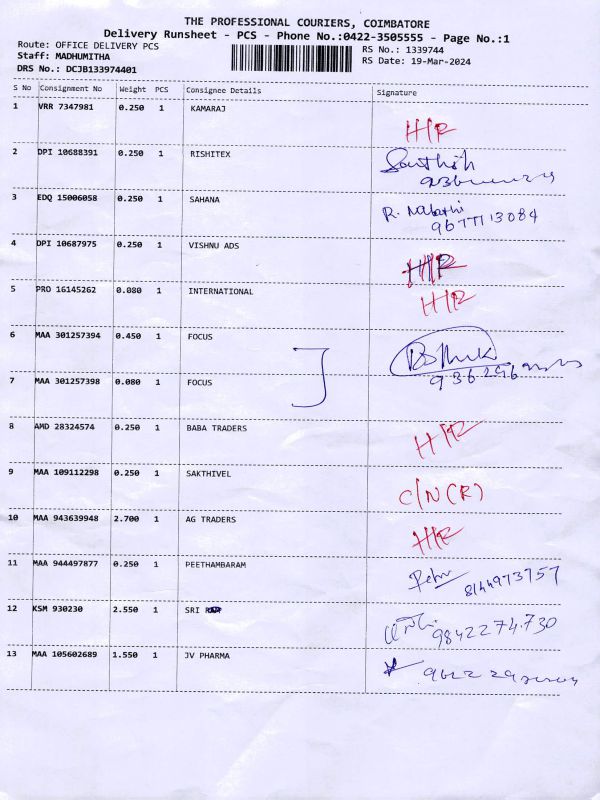 THE PROFESSIONAL COURIERS, COIMBATORE
Delivery Runsheet - PCS - Phone No.:0422-3505555 - Page No.:1
Route: OFFICE DELIVERY PCS
RS No.: 1339744
Staff: MADHUMITHA
RS Date: 19-Mar-2024
DRS No.: DCJB133974401
S No Consignment No Weight PCS Consignee Details Signature
1 VRR 7347981 0.250 1 KAMARAJ H/R
2 DPI 10688391 0.250 1 RISHITEX Santhosh
3 EDQ 15006058 0.250 1 SAHANA R.
9677113084
4 DPI 10687975 0.250 1 VISHNU ADS H/R
5 PRO 16145262 0.080 1 INTERNATIONAL H/R
6 MAA 301257394 0.450 1 FOCUS
7 MAA 301257398 0.080 1 FOCUS
8 AMD 28324574 0.250 1 BABA TRADERS H/R
9 MAA 109112298 0.250 1 SAKTHIVEL C/N(R)
10 MAA 943639948 2.700 1 AG TRADERS H/R
11 MAA 944497877 0.250 1 PEETHAMBARAM 8144973757
12 KSM 930230 2.550 1 SRI 9842274730
13 MAA 105602689 1.550 1 JV PHARMA